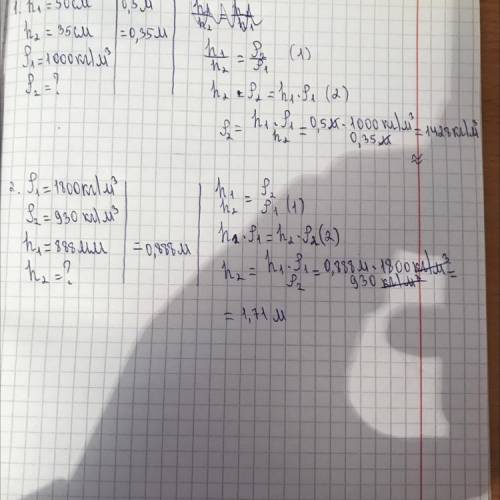 1. h₁ = 50см | 0,5м
h₂ = 35см | = 0,35м
h₁/h₂ = ρ₂/ρ₁ (1)
ρ₁ = 1000кг/м³
ρ₂ = ?
h₂ · ρ₂ = h₁ · ρ₁ (2)
ρ₂ = h₁ · ρ₁ / h₂ = 0,5м · 1000 кг/м³ / 0,35м = 1428кг/м³
≈
2. ρ₁ = 1800кг/м³
ρ₂ = 930 кг/м³
h₁ = 888мм | = 0,888м
h₂ = ?
h₁/h₂ = ρ₂/ρ₁ (1)
h₁ · ρ₁ = h₂ · ρ₂ (2)
h₂ = h₁ · ρ₁ / ρ₂ = 0,888м · 1800кг/м³ / 930 кг/м³ =
= 1,71 м